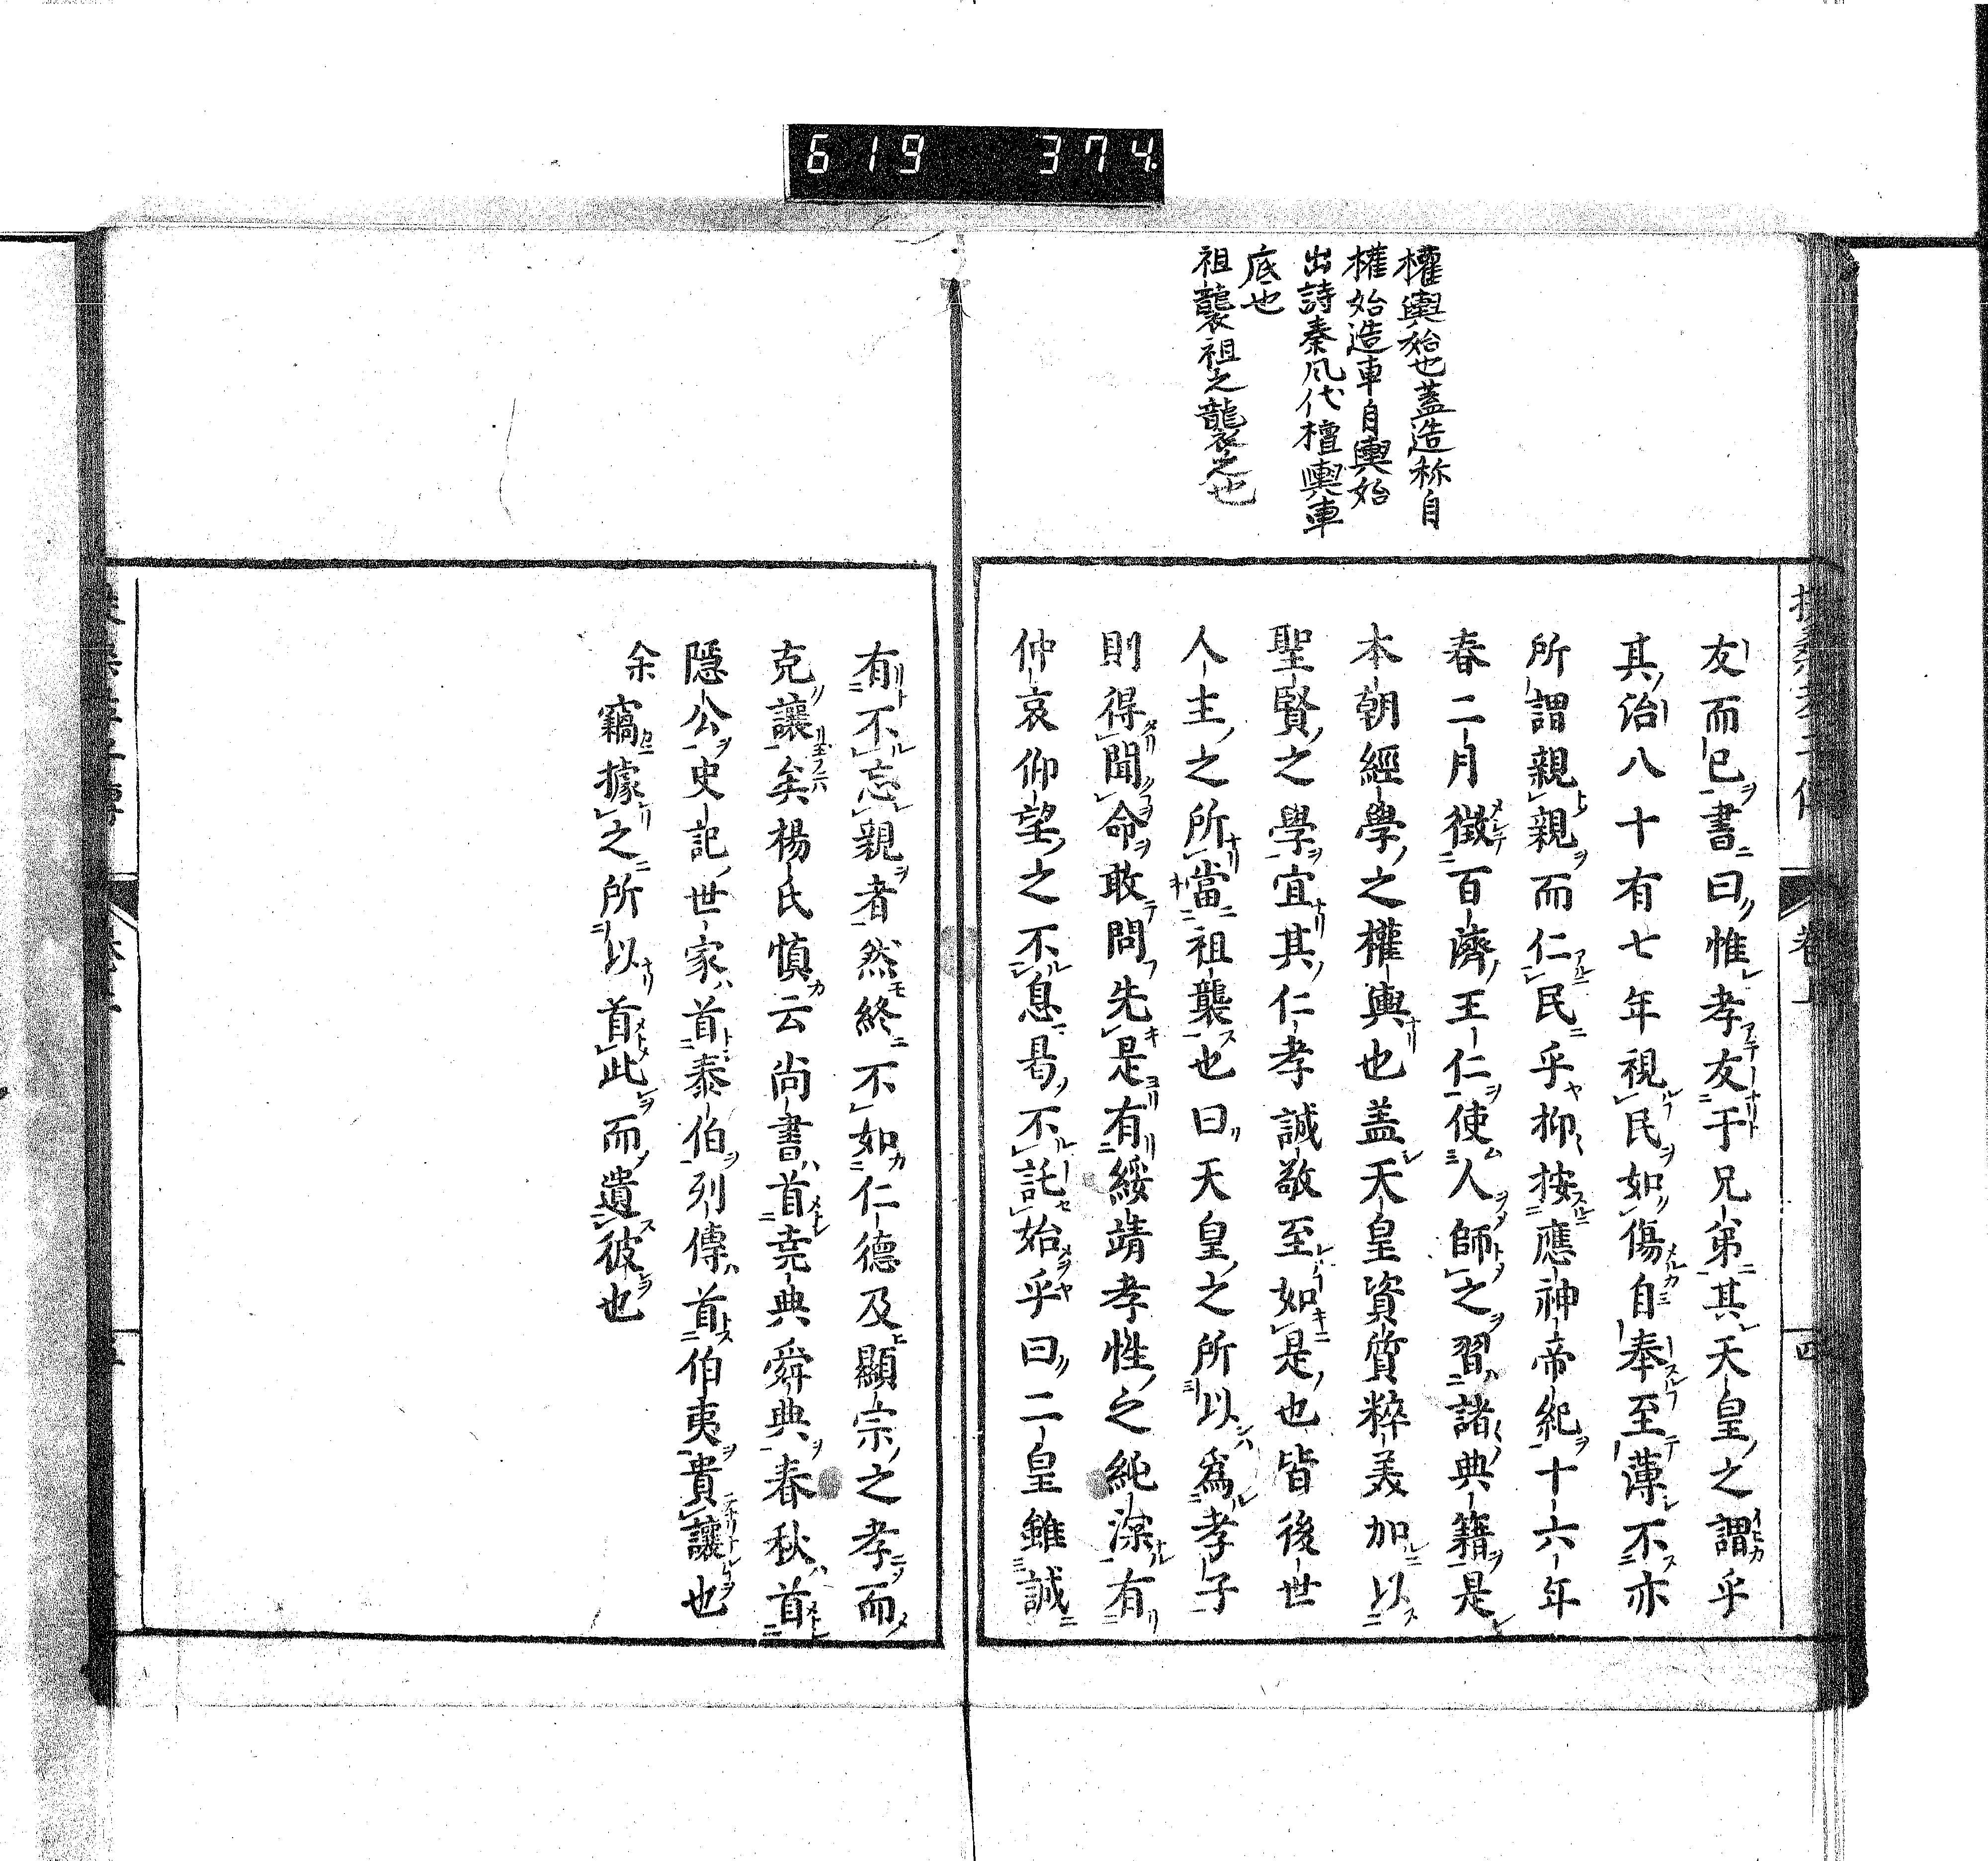 619 374
權輿始也蓋造称自
權始造車自輿始
出詩秦凨代檀輿車
底也
祖龔襲祖之龔襲之也
友而已書曰惟孝友于兄弟其天皇之謂乎
其治八十有七年視民如傷自奉至薄不亦
所謂親親而仁民乎抑按應神帝紀十六年
春二月徴百濟王仁使人師之習諸典籍是
本朝經學之權輿也盖天皇資質粹美加以
聖賢之學宜其仁孝誠敬至如是也皆後世
人主之所當祖襲也曰天皇之所以爲孝子
則得聞命敢問先是有綏靖孝性之純深有
仲哀仰望之不息曷不託始乎曰二皇雖誠
有不忘親者然終不如仁德及顯宗之孝而
克讓矣楊氏慎云尚書首堯典舜典春秋首
隱公史記世家首泰伯列傳首伯夷貴讓也
余竊據之所以首此而遺彼也